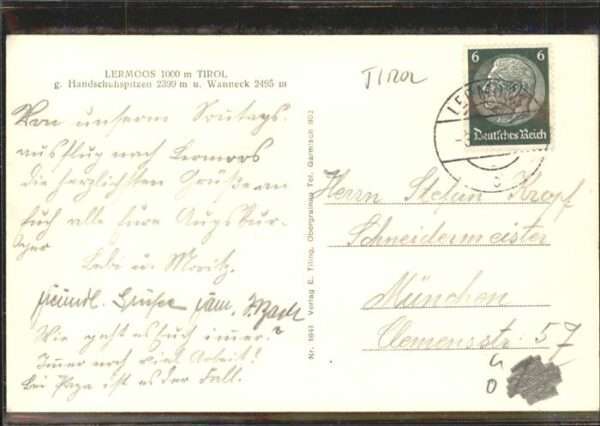 LERMOOS 1000 m TIROL
g. Handschuhspitzen 2399 m u. Wanneck 2495 m
Von unserm Sontags-
ausflug nach Lermoos
die herzlichsten Grüße an
Euch alle Eure Augsbur-
ger
u. Moritz.
freundl. Grüsse
Wie geht es Euch immer?
Immer noch viel Arbeit!
Bei Papa ist es der Fall.
Nr. 1641 Verlag E. Tiling, Obergrainau Tel. Garmisch
Tirol
6 6
Deutsches Reich
LERMOOS
Herrn Stefan Kropf
Schneidermeister
München
Clemensstr. 57